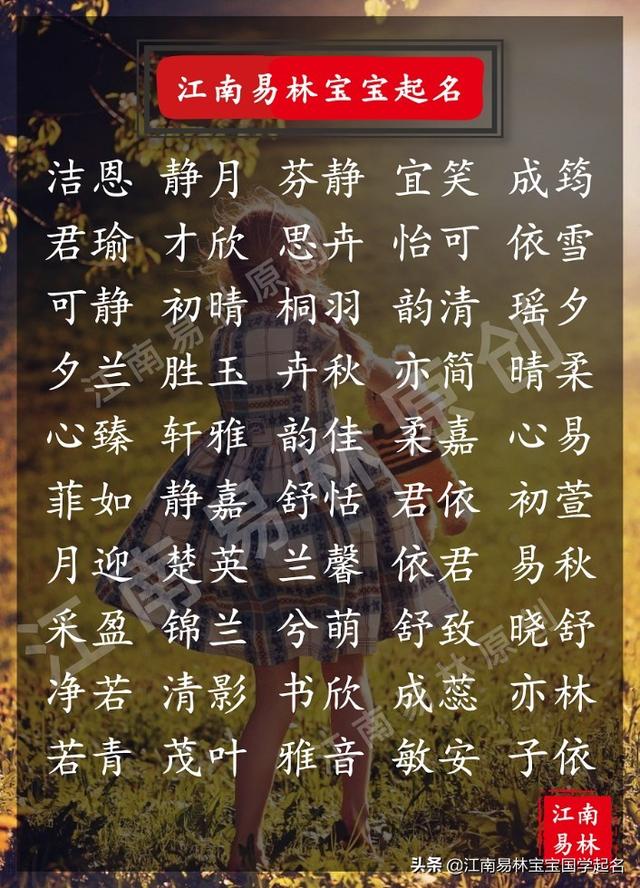 江南易林宝宝起名
洁恩 静月 芬静 宜笑 成筠
君瑜 才欣 思卉 怡可 依雪
可静 初晴 桐羽 韵清 瑶夕
夕兰 胜玉 卉秋 亦简 晴柔
心臻 轩雅 韵佳 柔嘉 心易
菲如 静嘉 舒恬 君依 初萱
月迎 楚英 兰馨 依君 易秋
采盈 锦兰 兮萌 舒致 晓舒
净若 清影 书欣 成蕊 亦林
若青 茂叶 雅音 敏安 子依
江南易林原创
江南易林原创
江南易林原创
江南
易林
头条 @江南易林宝宝国学起名